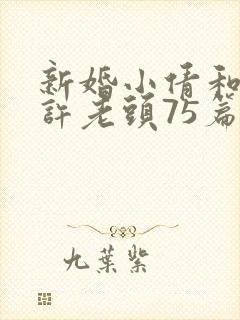 新婚小倩和
許老頭75篇
九葉紫